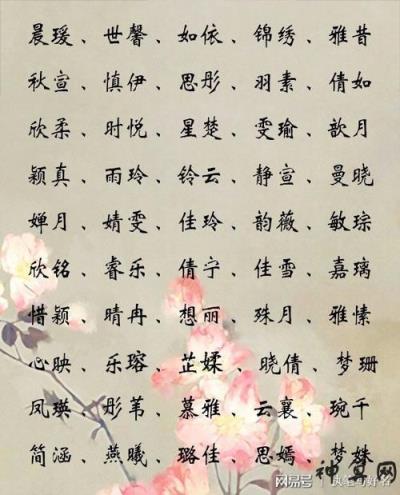 晨瑗、世馨、如依、锦绣、雅昔
秋宣、慎伊、思彤、羽素、倩如
欣柔、时悦、星楚、雯瑜、歆月
颖真、雨玲、铃云、静宣、曼晓
婵月、婧雯、佳玲、韵薇、敏琮
欣铭、睿乐、倩宁、佳雪、嘉璃
惜颖、晴冉、想丽、殊月、雅愫
心映、乐瑢、芷媃、晓倩、梦珊
凤瑛、彤苇、慕雅、云襄、琬千
简涵、燕曦、璐佳、思嫣、梦姝
网易号 执笔写好名